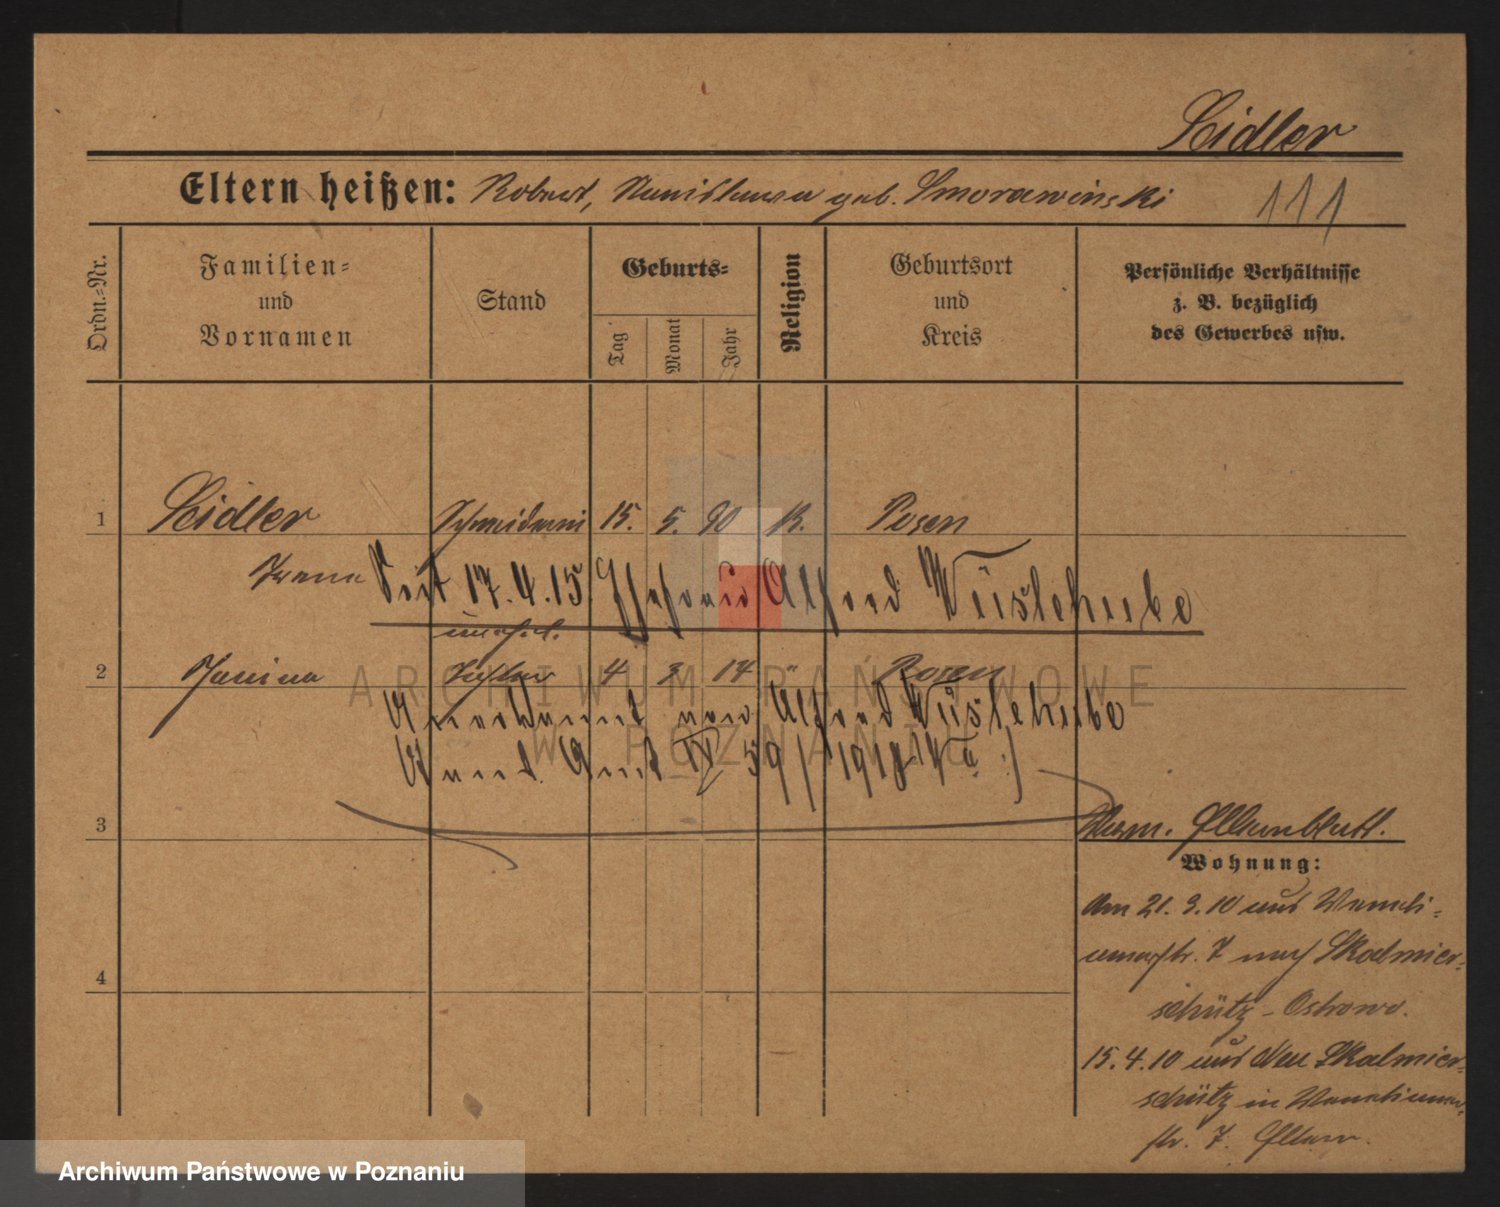 Zidler
Eltern heißen: Robert, Stanislawa geb. Smorawinski 111
Ordn.-Nr.
Familien-
und
Vornamen
Stand
Geburts-
Tag
Monat
Jahr
Religion
Geburtsort
und
Kreis
Persönliche Verhältnisse
z. B. bezüglich
des Gewerbes usw.
1 Zidler Schneiderin 15. 5. 90 K. Posen
Irena Seit 17.4.15. Ehefrau Alfred Wüstehube
unehel.
2 Janina Tochter 4 3 14 " Posen
Anerkannt von Alfred Wüstehube
3
Verm. Elternblatt.
Wohnung:
Am 21.3.10 aus Veneti-
anerstr. 7 nach Skalmier-
schütz - Ostrowo.
4
15.4.10 aus Neu Skalmier-
schütz in Venetianer-
str. 7. Eltern.
ARCHIWUM PAŃSTWOWE
W POZNANIU
Archiwum Państwowe w Poznaniu